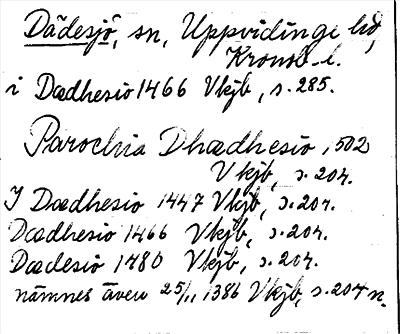 Dädesjö, sn, Uppvidinge hd,
Kronob. l.
i Dædhesio 1466 Vkjb, s. 285.
Parochia Dhædhesio 1502
Vkjb, s. 204.
J Dædhesio 1447 Vkjb, s. 204.
Dædhesio 1466 Vkjb, s. 204.
Dædesio 1480 Vkjb, s. 204.
nämnes även 25/11 1386 Vkjb, s. 204 n.